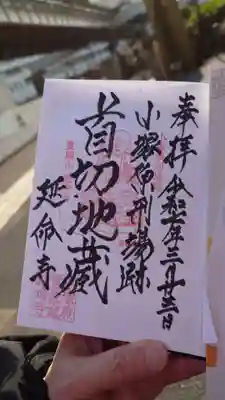 奉拝 令和七年三月廿三日
小塚原刑場跡
首切地蔵
延命寺